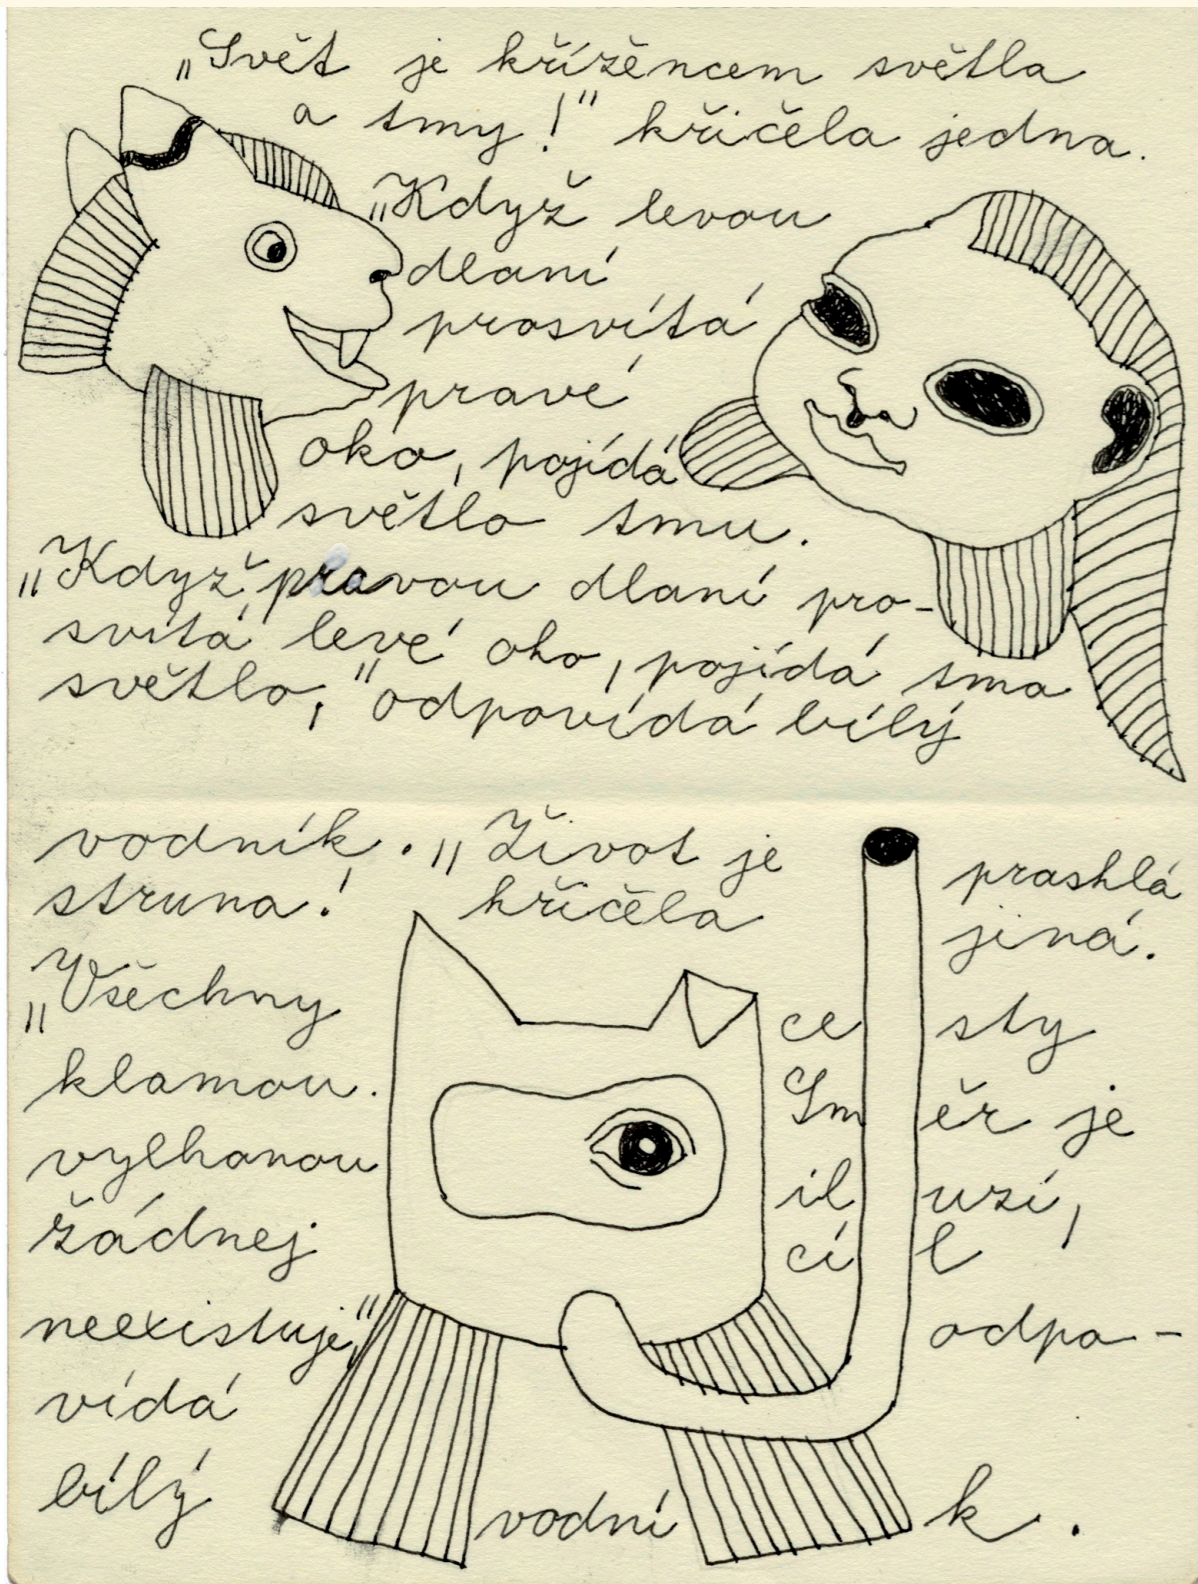 „Svět je křížencem světla
a tmy!" křičela jedna.
„Když levou
dlaní
prosvítá
pravé
oko, pojídá
světlo tmu.
„Když pravou dlaní pro-
svítá levé oko, pojídá tma
světlo," odpovídá bílý
vodník. „Život je prasklá
struna! křičela jiná.
„Všechny cesty
klamou. Směr je
vylhanou iluzí,
žádnej cíl
neexistuje," odpo-
vídá
bílý vodník.